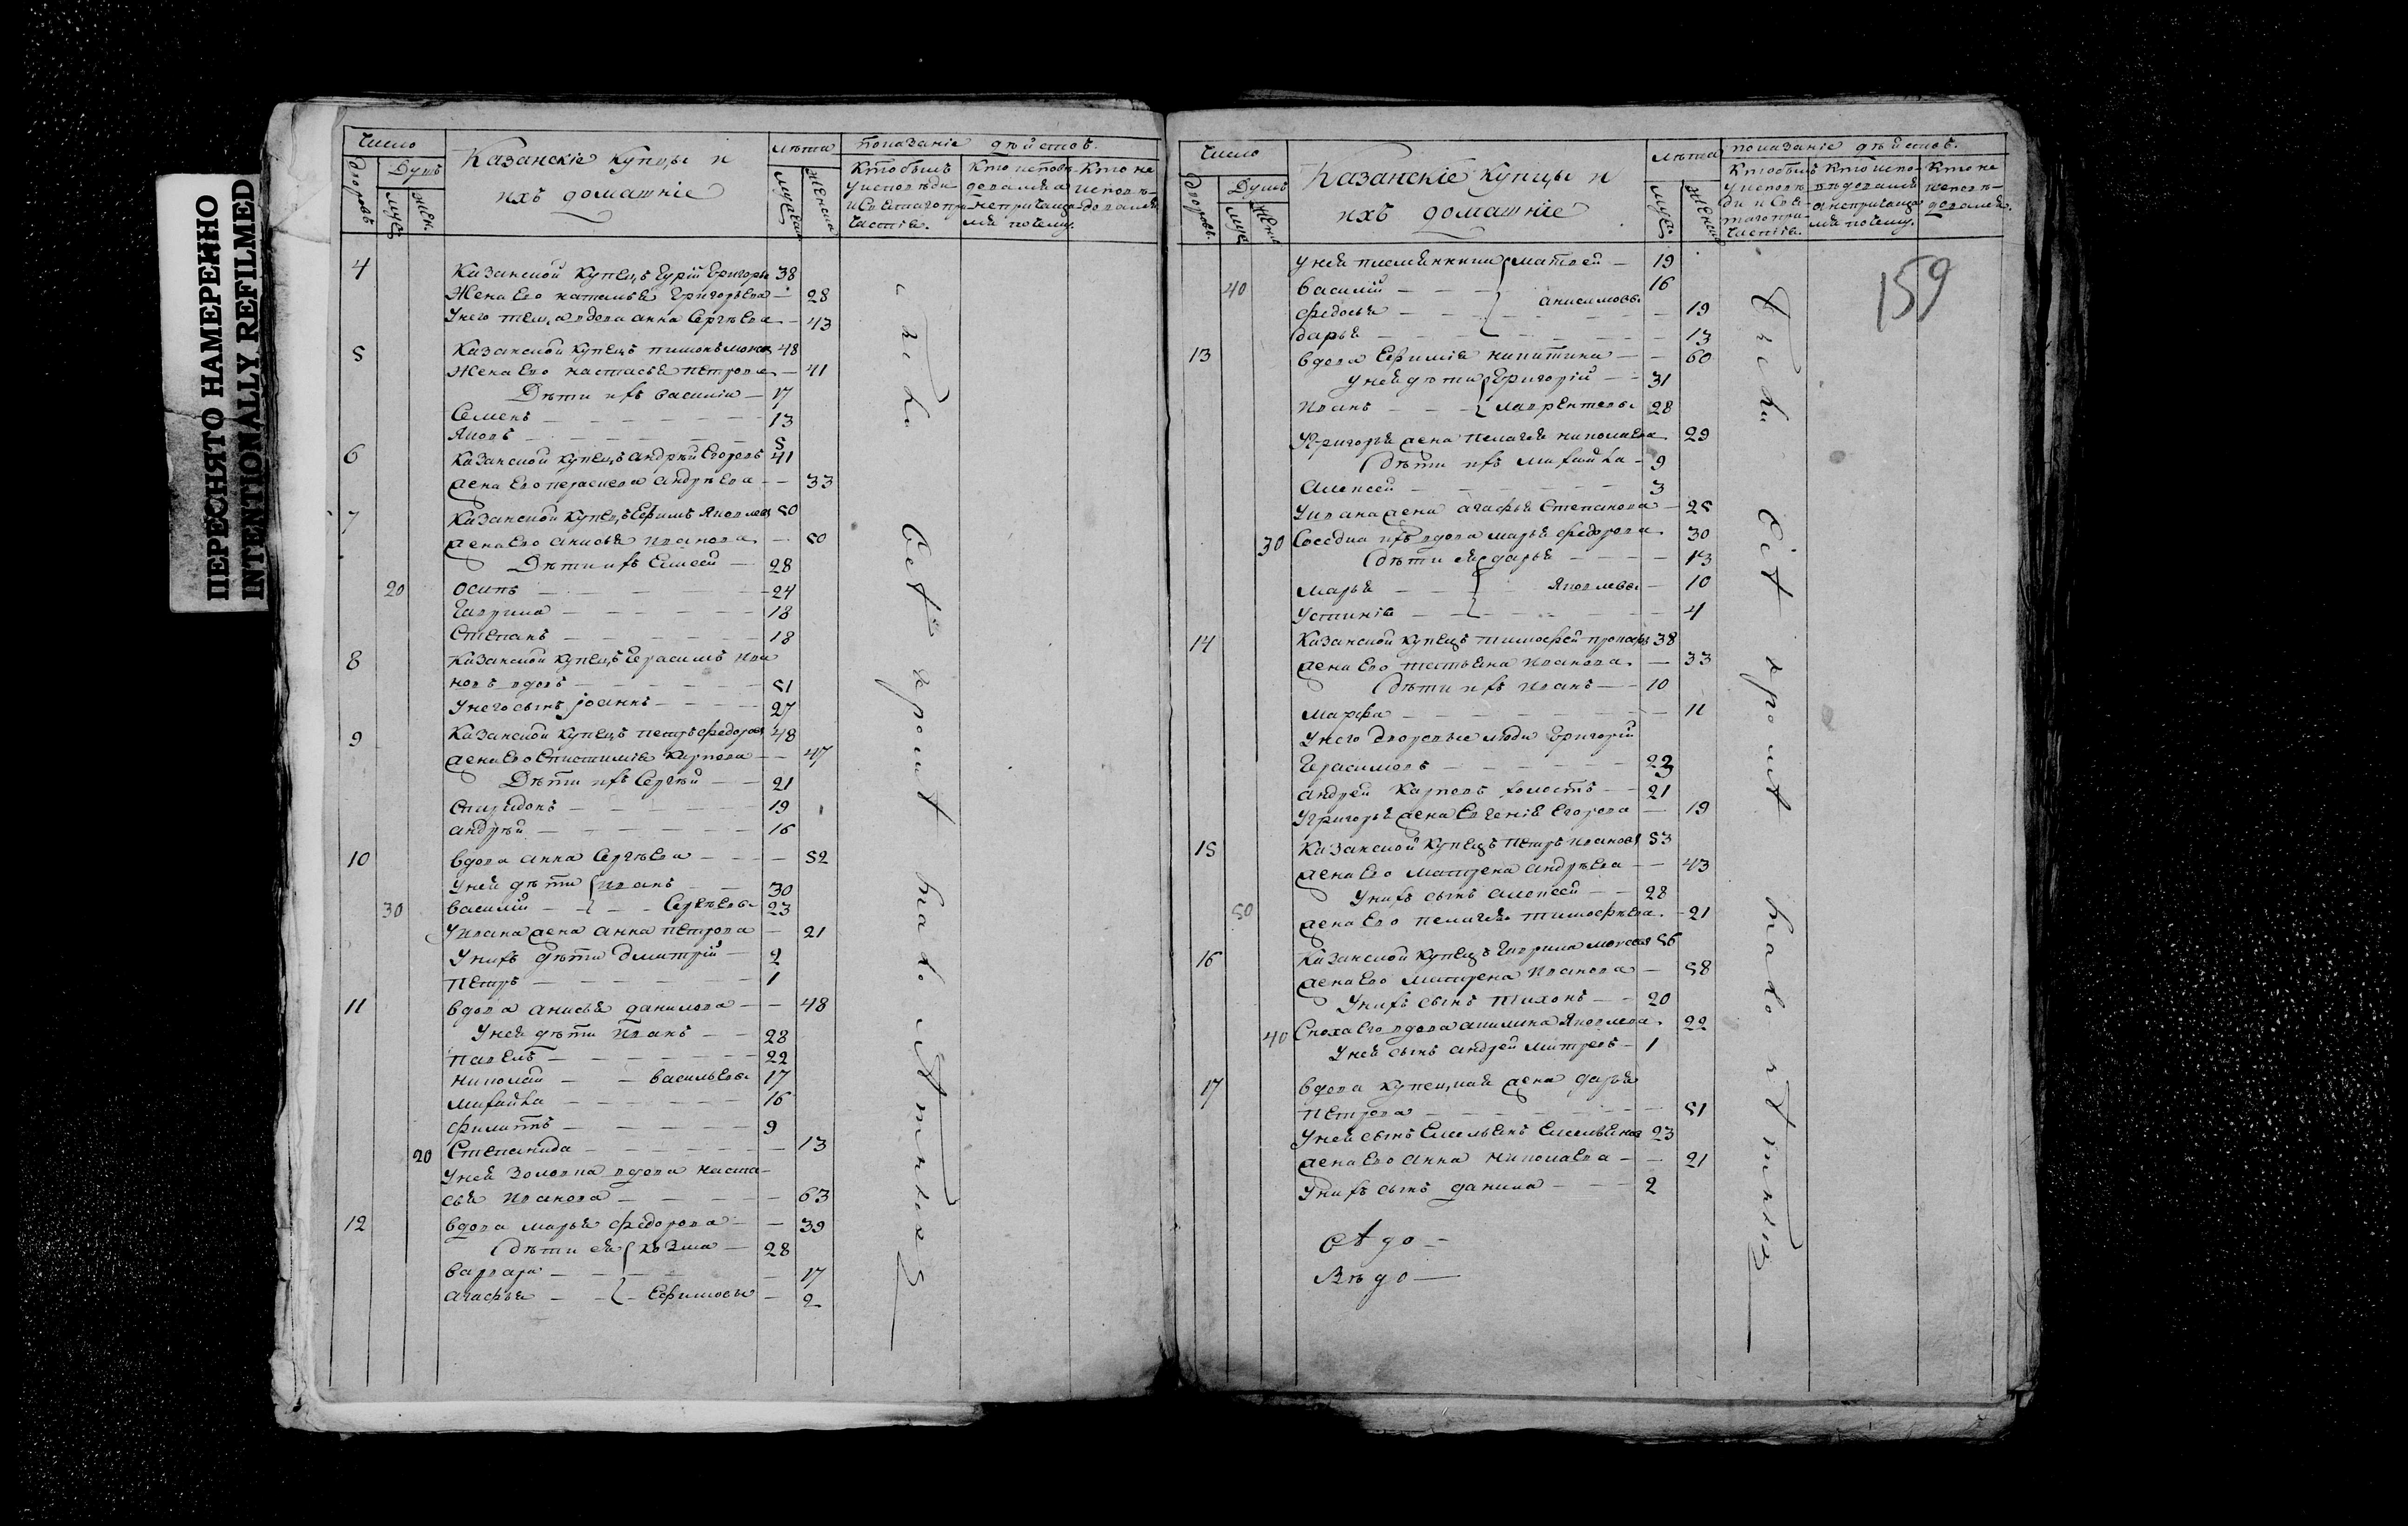 ПЕРЕСНЯТО НАМЕРЕННО
INTENTIONALLY REFILMED
Число
дворовъ
Душъ
муж
жен.
Казанскіе купцы и
ихъ домашніе
лѣта
мужеска
женска
показаніе действъ.
Кто былъ у исповѣди и святаго причастія.
Кто исповѣдовался а непричащался почему.
Кто не исповѣдовался.
4 Казанской купецъ Гурій Григорьевъ 38
Жена Его наталья Григорьева 28
У него теща вдова анна Сергѣева 43
5 Казанской купецъ пимонъ 48
Жена Его настасья петрова 41
Дѣти ихъ василий 17
Семенъ 13
Яковъ 5
6 Казанской купецъ андрѣй Егоровъ 41
жена Его андрѣева 33
7 Казанской купецъ Ефимъ Яковлевъ 50
жена Его анисья иванова 50
Дѣти ихъ Елисей 28
20 осипъ 24
Гаврила 18
Степанъ 18
8 Казанской купецъ Герасимъ ива
новъ вдовъ 51
У него сынъ Iоаннъ 27
9 Казанской купецъ петръ федоровъ 48
жена Его Епистимія Карпова 47
Дѣти ихъ Сергѣй 21
Спиридонъ 19
андрѣй 16
10 вдова анна Сергѣева 52
У ней дѣти иванъ 30
30 василій Сергѣевы 23
У ивана жена анна петрова 21
У нихъ дѣти дмитрій 2
петръ 1
11 вдова анисья данилова 48
У ней дѣти иванъ 28
павелъ 22
николай васильевы 17
михайла 16
филиппъ 9
20 Степанида 13
У ней золовка вдова наста
сья иванова 63
12 вдова марья федорова 39
дѣти ея козма 28
варвара 17
агафья Ефимовы 2
Число
дворовъ.
Душъ
муж
жена
Казанскіе купцы и
ихъ домашніе
лѣта
муж.
женска
показаніе дѣйствъ.
Кто былъ у исповѣди и святаго причастія.
Кто исповѣдовался а непричащался почему.
Кто не исповѣдовался.
159
У ней племянники матвей 19
40 василій 16
федосья анисимовы 19
дарья 13
13 вдова Ефимія никитина 60
У ней дѣти Григорій 31
иванъ лаврентьевы 28
У григорья жена пелагея николаева 29
дѣти ихъ михайла 9
алексей 3
У ивана жена агафья Степанова 25
30 Соседка ихъ вдова марья федорова 30
дѣти ея дарья 13
марья Яковлевы 10
устинія 4
14 Казанской купецъ тимофей 38
жена Его татьяна иванова 33
дѣти ихъ иванъ 10
марфа 11
У него дворовые люди Григорій
Герасимовъ 23
андрей Карповъ холостъ 21
У григорья жена Евгенія Егорова 19
15 Казанской купецъ петръ ивановъ 53
жена Его матрена андрѣева 43
У нихъ сынъ алексей 28
50 жена Его пелагея тимофѣева 21
16 Казанской купецъ Гаврила 56
жена Его матрена иванова 58
У нихъ сынъ тихонъ 20
40 Сноха Его вдова акилина Яковлева 22
У ней сынъ андрей митревъ 1
17 вдова купецкая жена дарья
петрова 51
У ней сынъ Емельянъ Емельяновъ 23
жена Его анна николаева 21
У нихъ сынъ данила 2